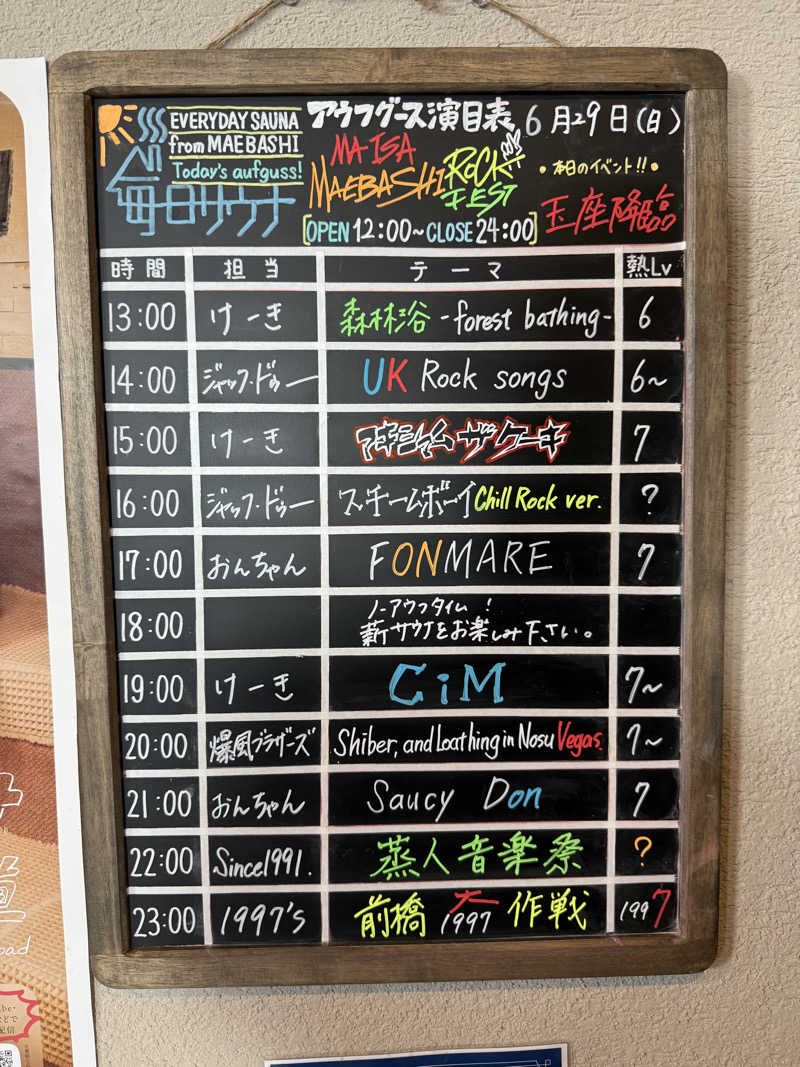 EVERYDAY SAUNA
from MAEBASHI
Today's aufguss!
毎日サウナ
アウフグース演目表
MAISA
MAEBASHI ROCK
FEST
[OPEN 12:00~CLOSE 24:00]
6月29日(日)
•本日のイベント!!•
玉座降臨
時間 担当 テーマ 熱Lv
13:00 けーき 森林浴 -forest bathing- 6
14:00 ジャック・ドゥー UK Rock songs 6~
15:00 けーき マキシマム ザ ケーキ 7
16:00 ジャック・ドゥー スチームボーイ Chill Rock ver. ?
17:00 おんちゃん FONMARE 7
18:00 ノーアウフタイム!
薪サウナをお楽しみ下さい。
19:00 けーき CiM 7~
20:00 爆風ブラザーズ Shiber, and Loathing in Nosu Vegas. 7~
21:00 おんちゃん Saucy Don 7
22:00 Since1991. 蒸人音楽祭 ?
23:00 1997's 前橋 大 1997 作戦 1997